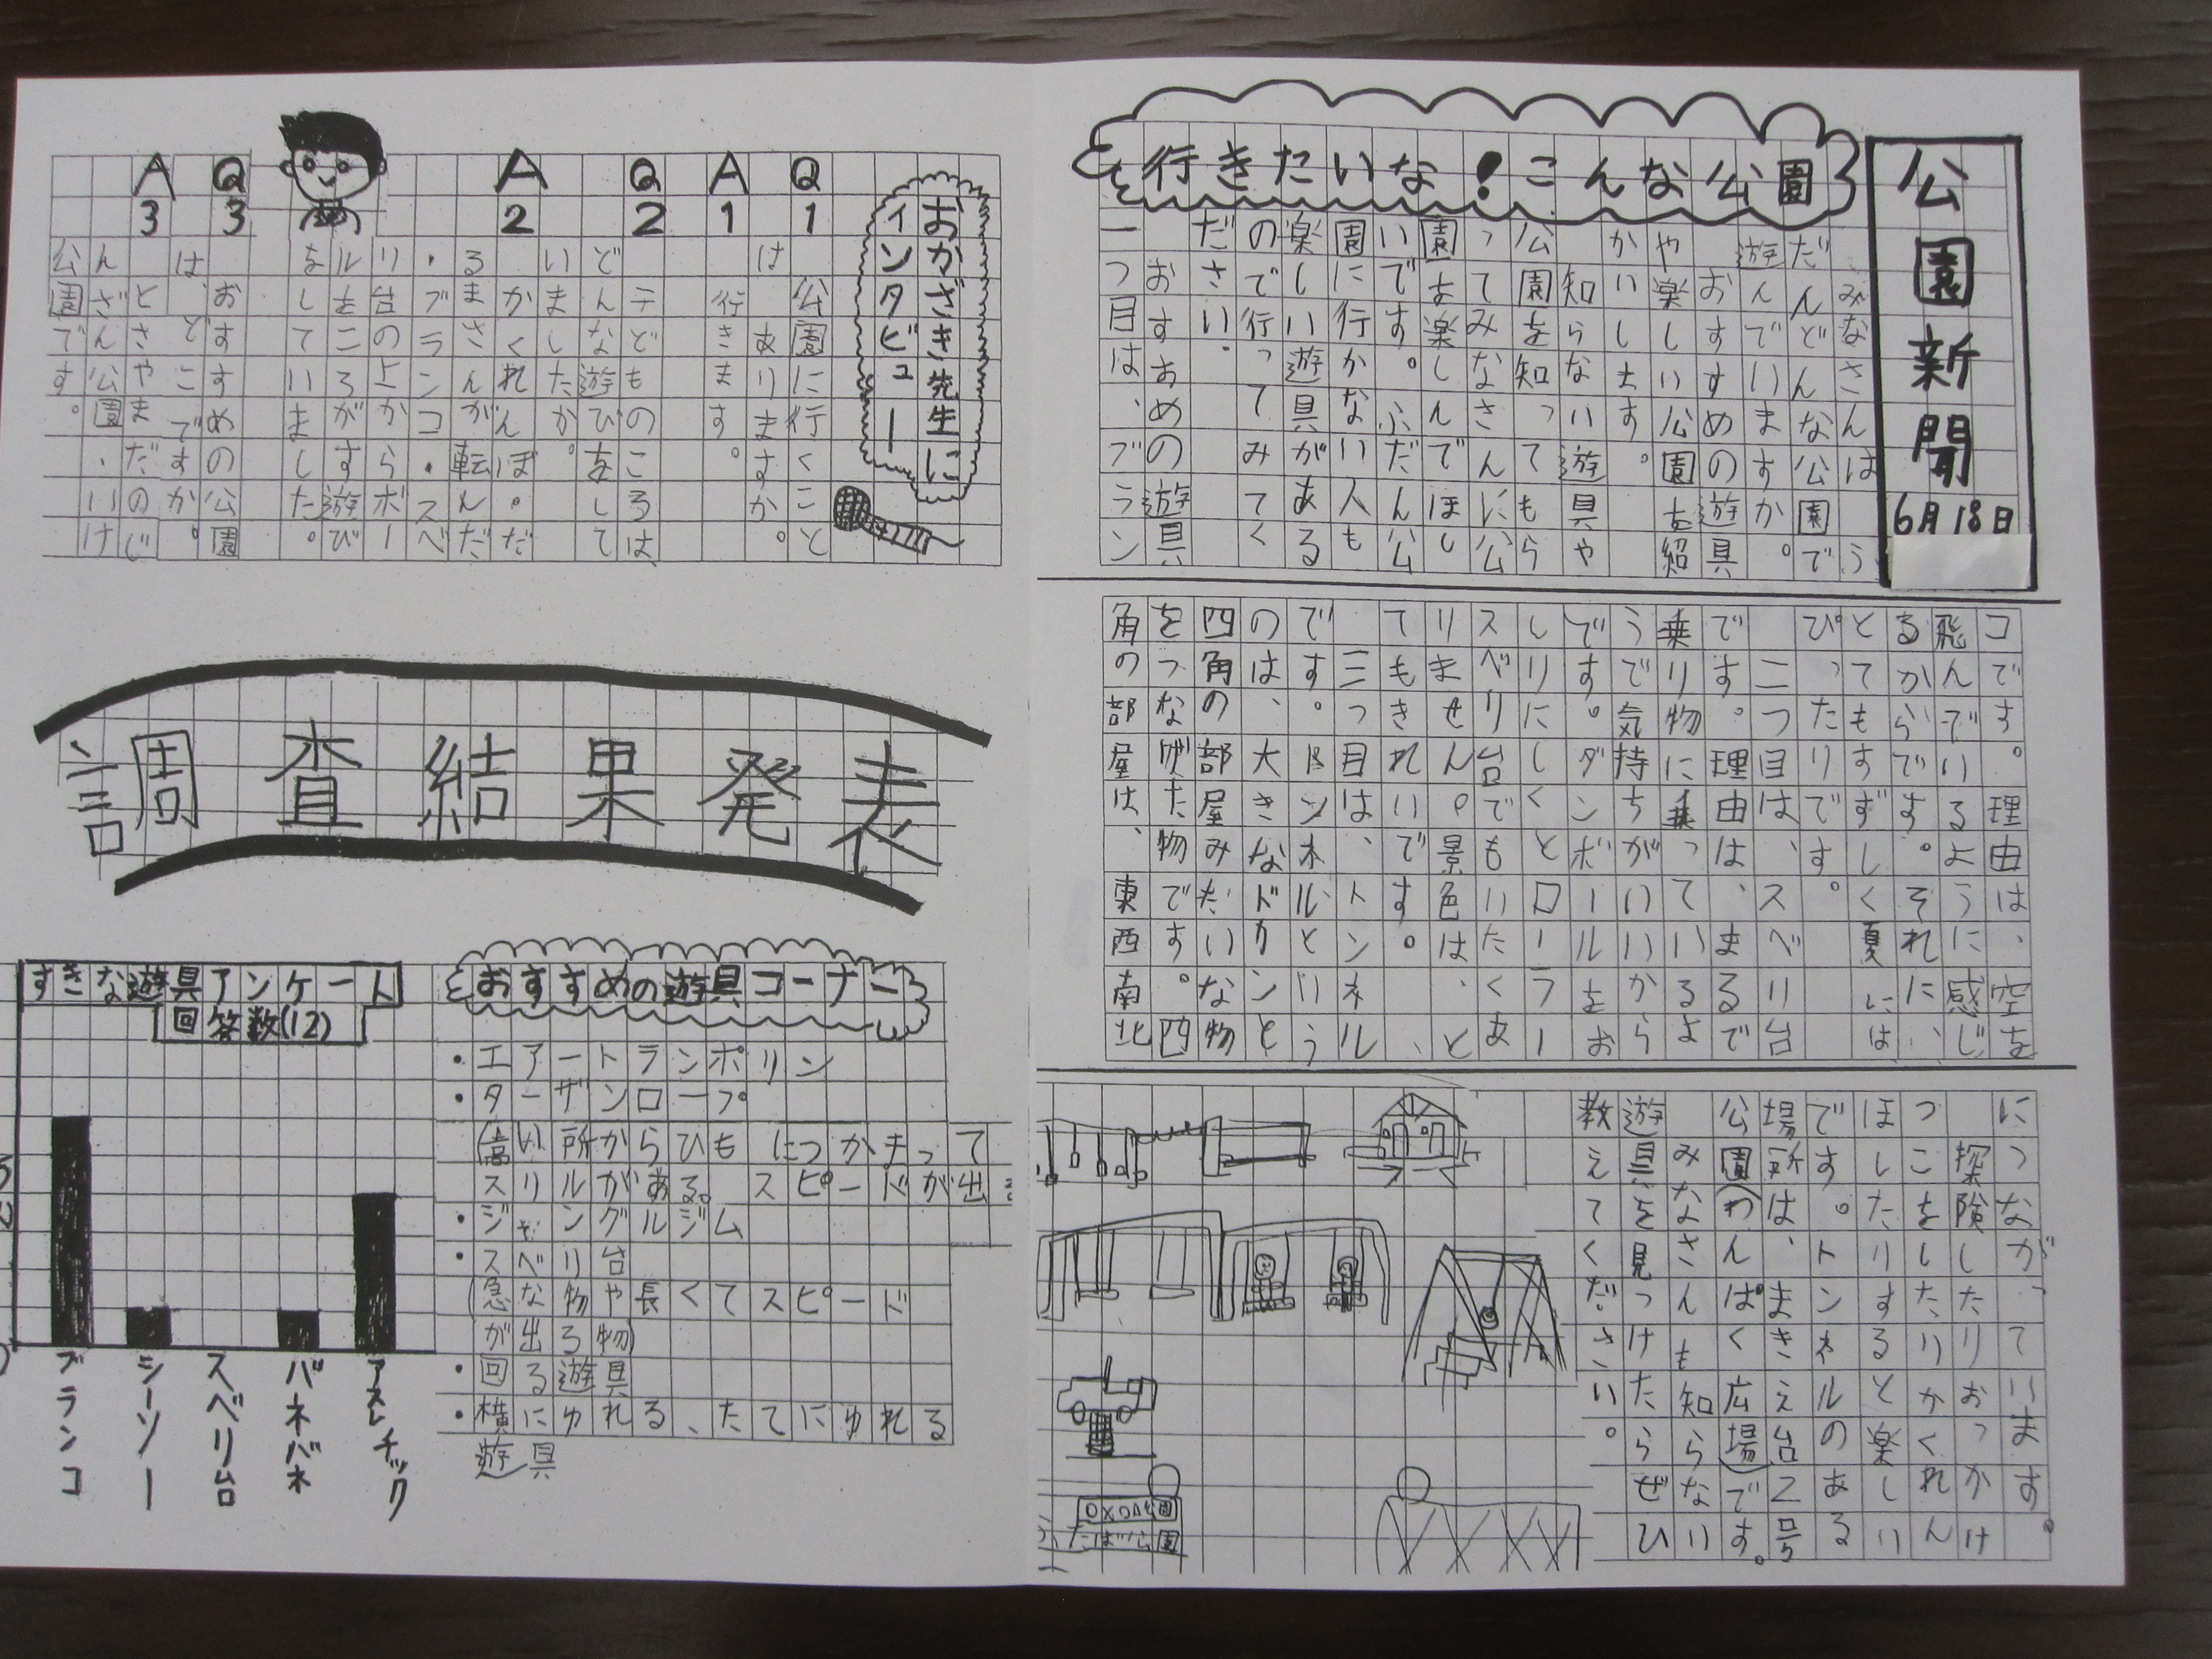 公園新聞
6月18日
行きたいな!こんな公園
みなさんは、ふ
だんどんな公園で
遊んでいますか。
おすすめの遊具
や楽しい公園を紹
かいします。
知らない遊具や
公園を知ってもら
ってみなさんに公
園を楽しんでほし
いです。ふだん公
園に行かない人も
楽しい遊具がある
ので行ってみてく
ださい。
おすすめの遊具
一つ目は、ブラン
コです。理由は、空を
飛んでいるように感じ
るからです。それに、
とてもすずしく夏には
ぴったりです。
二つ目は、スベリ台
です。理由は、まるで
乗り物に乗っているよ
うで気持ちがいいから
です。ダンボールをお
しりにしくとローラー
スベリ台でもいたくあ
りません。景色は、と
てもきれいです。
三つ目は、トンネル
です。トンネルという
のは、大きなドカンと
四角の部屋みたいな物
をつなげた物です。四
角の部屋は、東西南北
につながっています。
探険したりおっかけ
っこをしたりかくれん
ほしたりすると楽しい
です。トンネルのある
場所は、まきえ台2号
公園(わんぱく広場)です。
みなさんも知らない
遊具を見つけたらぜひ
教えてください。
OXOA公園
ふたば公園
おかざき先生に
インタビュー
Q1 公園に行くこと
はありますか。
A1 行きます。
Q2 子どものころは、
どんな遊びをして
いましたか。
A2 かくれんぼ。だ
るまさんが転んだ
・ブランコ・スベ
リ台の上からボー
ルをころがす遊び
をしていました。
Q3 おすすめの公園
は、どこですか。
A3 とさやまだのじ
んざん公園、いけ
公園です。
調査結果発表
おすすめの遊具コーナー
・エアートランポリン
・ターザンロープ
(高い所からひもにつかまって
スリルがある。スピードが出る)
・ジャングルジム
・スベリ台
(急な物や長くてスピード
が出る物)
・回る遊具
・横にゆれる、たてにゆれる
遊具
すきな遊具アンケート
回答数(12)
ブランコ
シーソー
スベリ台
バネバネ
アスレチック